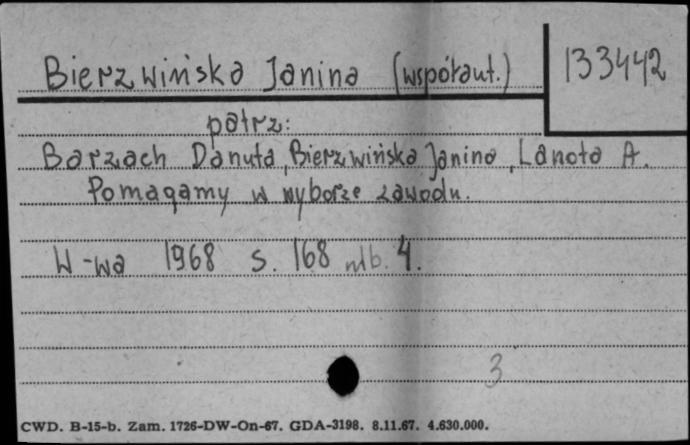 Bierzwińska Janina (współaut.) 133442
patrz:
Barzach Danuta, Bierzwińska Janina, Lanota A.
Pomagamy w wyborze zawodu.
W-wa 1968 s. 168 nlb. 4.
3
CWD. B-15-b. Zam. 1726-DW-On-67. GDA-3198. 8.11.67. 4.630.000.